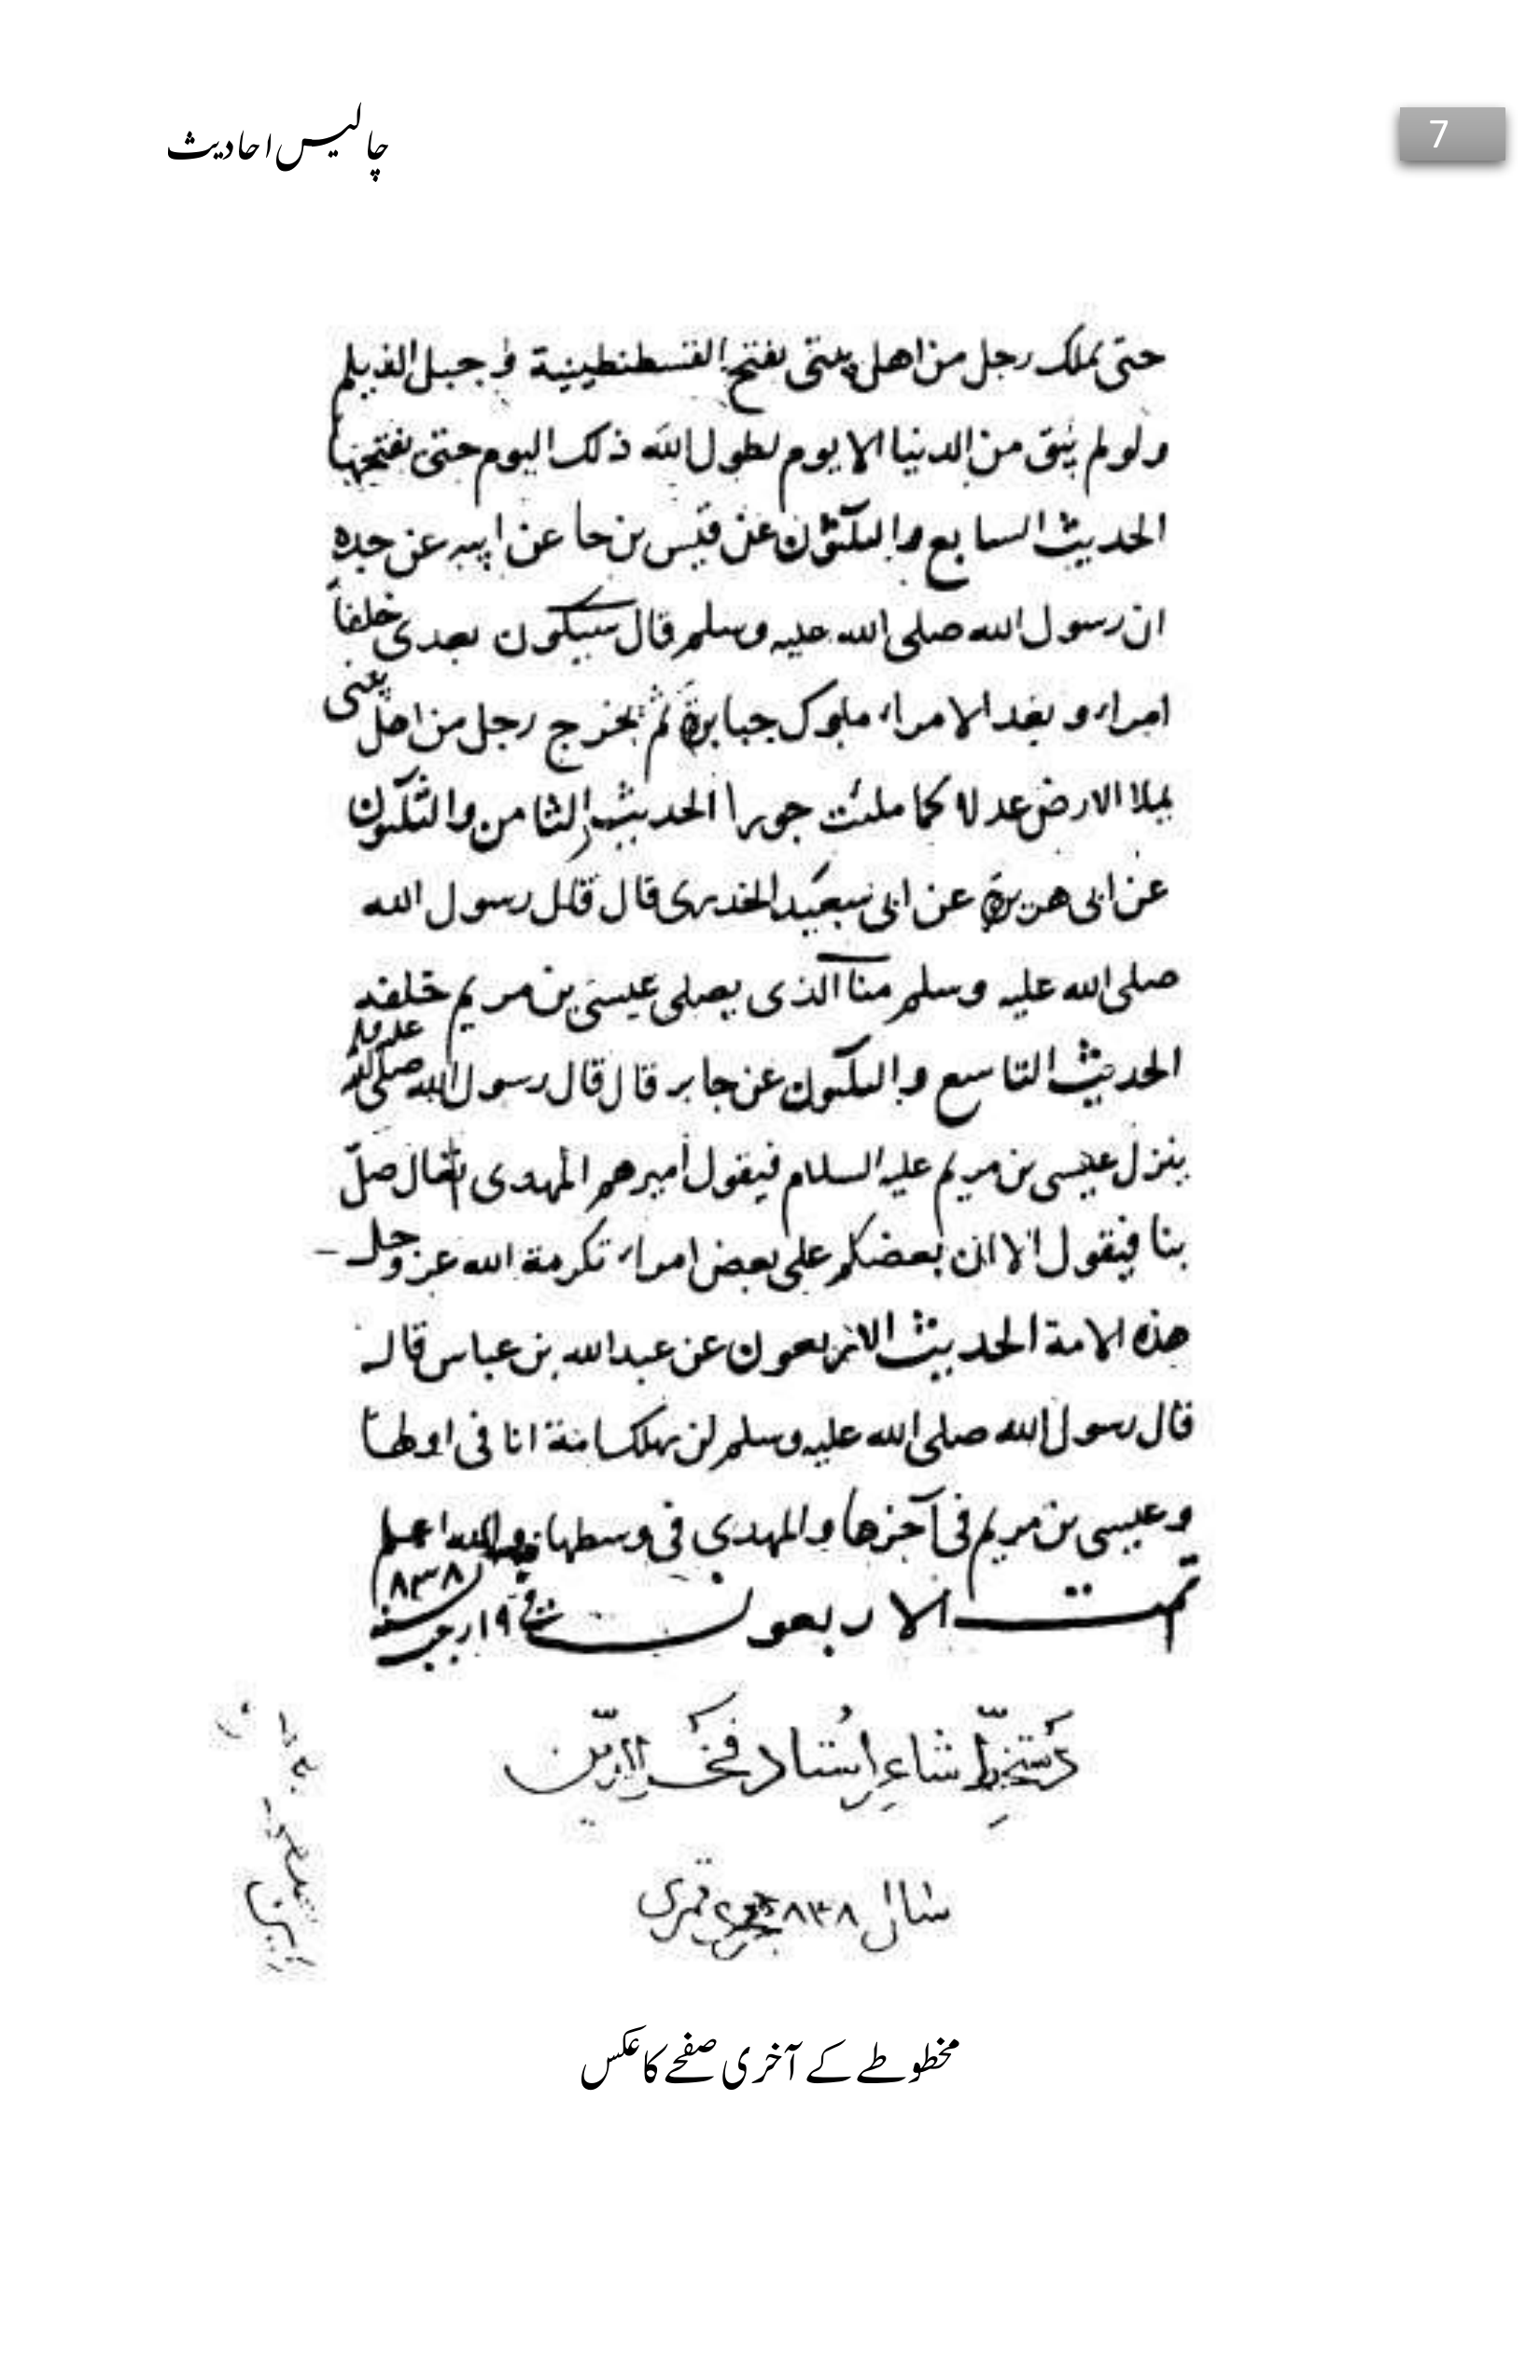 چالیس احادیث
7
حتى يملك رجل من اهل بيتى يفتح القسطنطينية و جبل الديلم
ولو لم يبق من الدنيا الا يوم لطول الله ذلك اليوم حتى يفتحها
الحديث السابع والثلثون عن قيس بن جا عن ابيه عن جده
ان رسول الله صلى الله عليه وسلم قال سيكون بعدى خلفاً
امراء و بعد الامراء ملوك جبابرة ثم يخرج رجل من اهل بيتى
يملا الارض عدلا كما ملئت جورا الحديث الثامن والثلثون
عن ابى هريرة عن ابى سعيد الخدرى قال قال رسول الله
صلى الله عليه وسلم منا الذى يصلى عيسى بن مريم خلفه
الحديث التاسع والثلثون عن جابر قال قال رسول الله صلى الله عليه و
ينزل عيسى بن مريم عليه السلام فيقول اميرهم المهدى تعال صلّ
بنا فيقول الا ان بعضكم على بعض امراء تكرمة الله عز وجل
هذه الامة الحديث الاربعون عن عبدالله بن عباس قال
قال رسول الله صلى الله عليه وسلم لن يهلك امة انا فى اولها
وعيسى بن مريم فى آخرها والمهدى فى وسطها والله اعلم
تمت الاربعون فى ١٩ رجب سنه ٨٣٨
دستخطّ شاعر استاد فخر الدّين
سال ٨٣٨ هجرى قمرى
مخطوطے کے آخری صفحے کا عکس